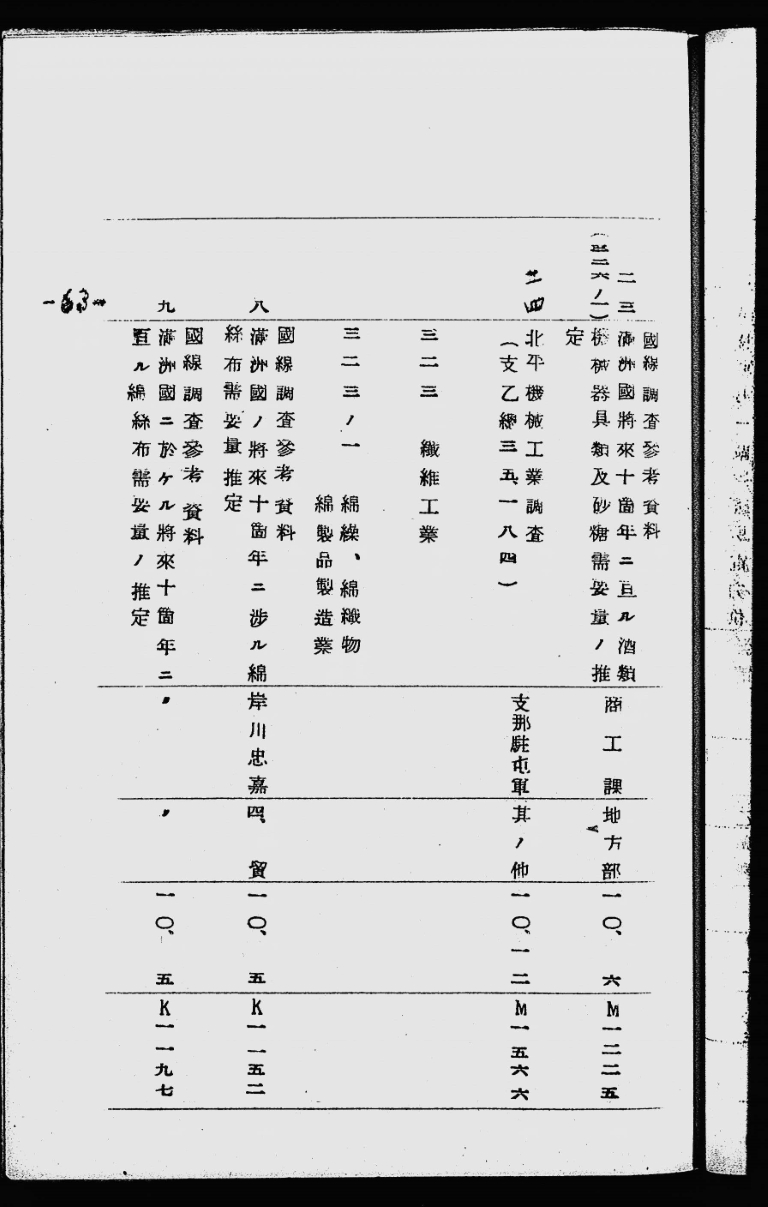 二三
國線調査參考資料
滿洲國將來十箇年ニ亘ル酒類
機械器具類及砂糖需要量ノ推
定
商工課
地方部
一〇、六
M一二二五
二四
北平機械工業調査
(支乙總三五、一八四)
支那駐屯軍
其ノ他
一〇、一二
M一五六六
三二三 纖維工業
三二三ノ一 綿繰、綿織物
綿製品製造業
八
國線調査參考資料
滿洲國ノ將來十箇年ニ涉ル綿
絲布需要量推定
岸川忠嘉
四、貿
一〇、五
K一一五二
九
國線調査參考資料
滿洲國ニ於ケル將來十箇年ニ
亘ル綿絲布需要量ノ推定
〃
〃
一〇、五
K一一九七
-63-